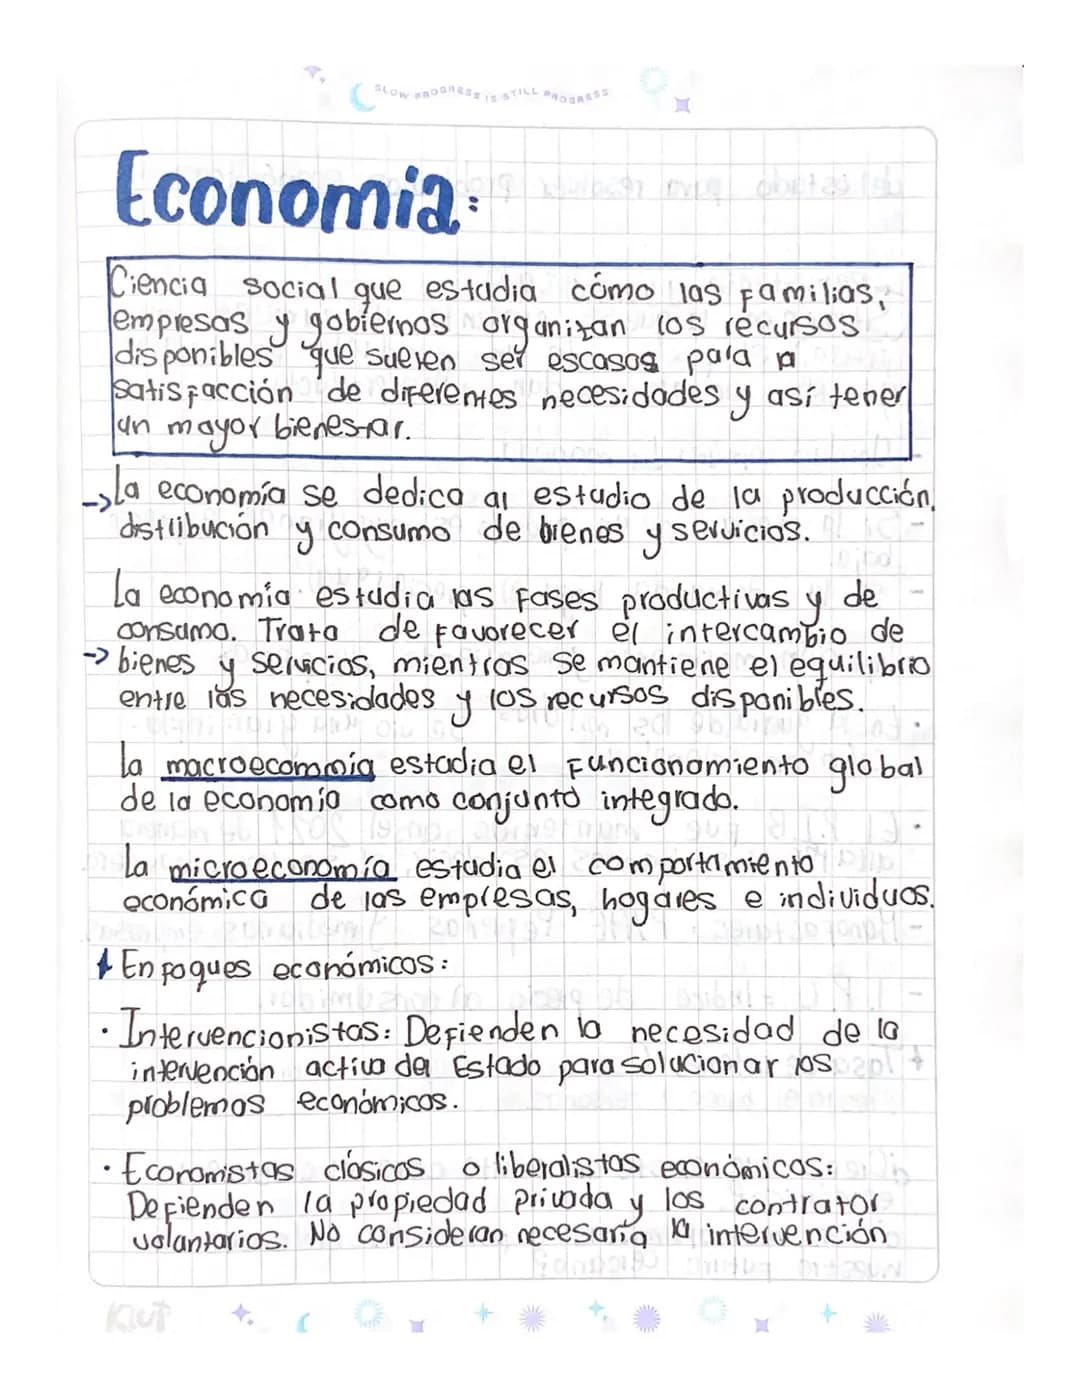 SLOW PROGRESS IS STILL PROGRESS
Economia:
Ciencia social que estudia cómo las familias,
empresas y gobiernos organizan los recursos
disponibles que suelen ser escasos para la
satisfacción de diferentes necesidades y así tener
un mayor bienestar.
→La economía se dedica al estudio de la producción,
distribución y consumo de bienes y servicios.
La economía estudia las fases productivas y de
consumo. Trata de favorecer el intercambio de
→ bienes y servicios, mientras se mantiene el equilibrio
entre las necesidades y los recursos disponibles.
La macroeconomía estudia el funcionamiento global
de la economía como conjunto integrado.
La microeconomía estudia el comportamiento
económico de las empresas, hogares e individuos.
Enfoques económicos:
· Intervencionistas: Defienden la necesidad de la
intervención activa del Estado para solucionar los
problemas económicos.
· Economistas clásicos o liberalistas económicos:
Defienden la propiedad privada y los contrator
voluntarios. No consideran necesaria la intervención
Kiut